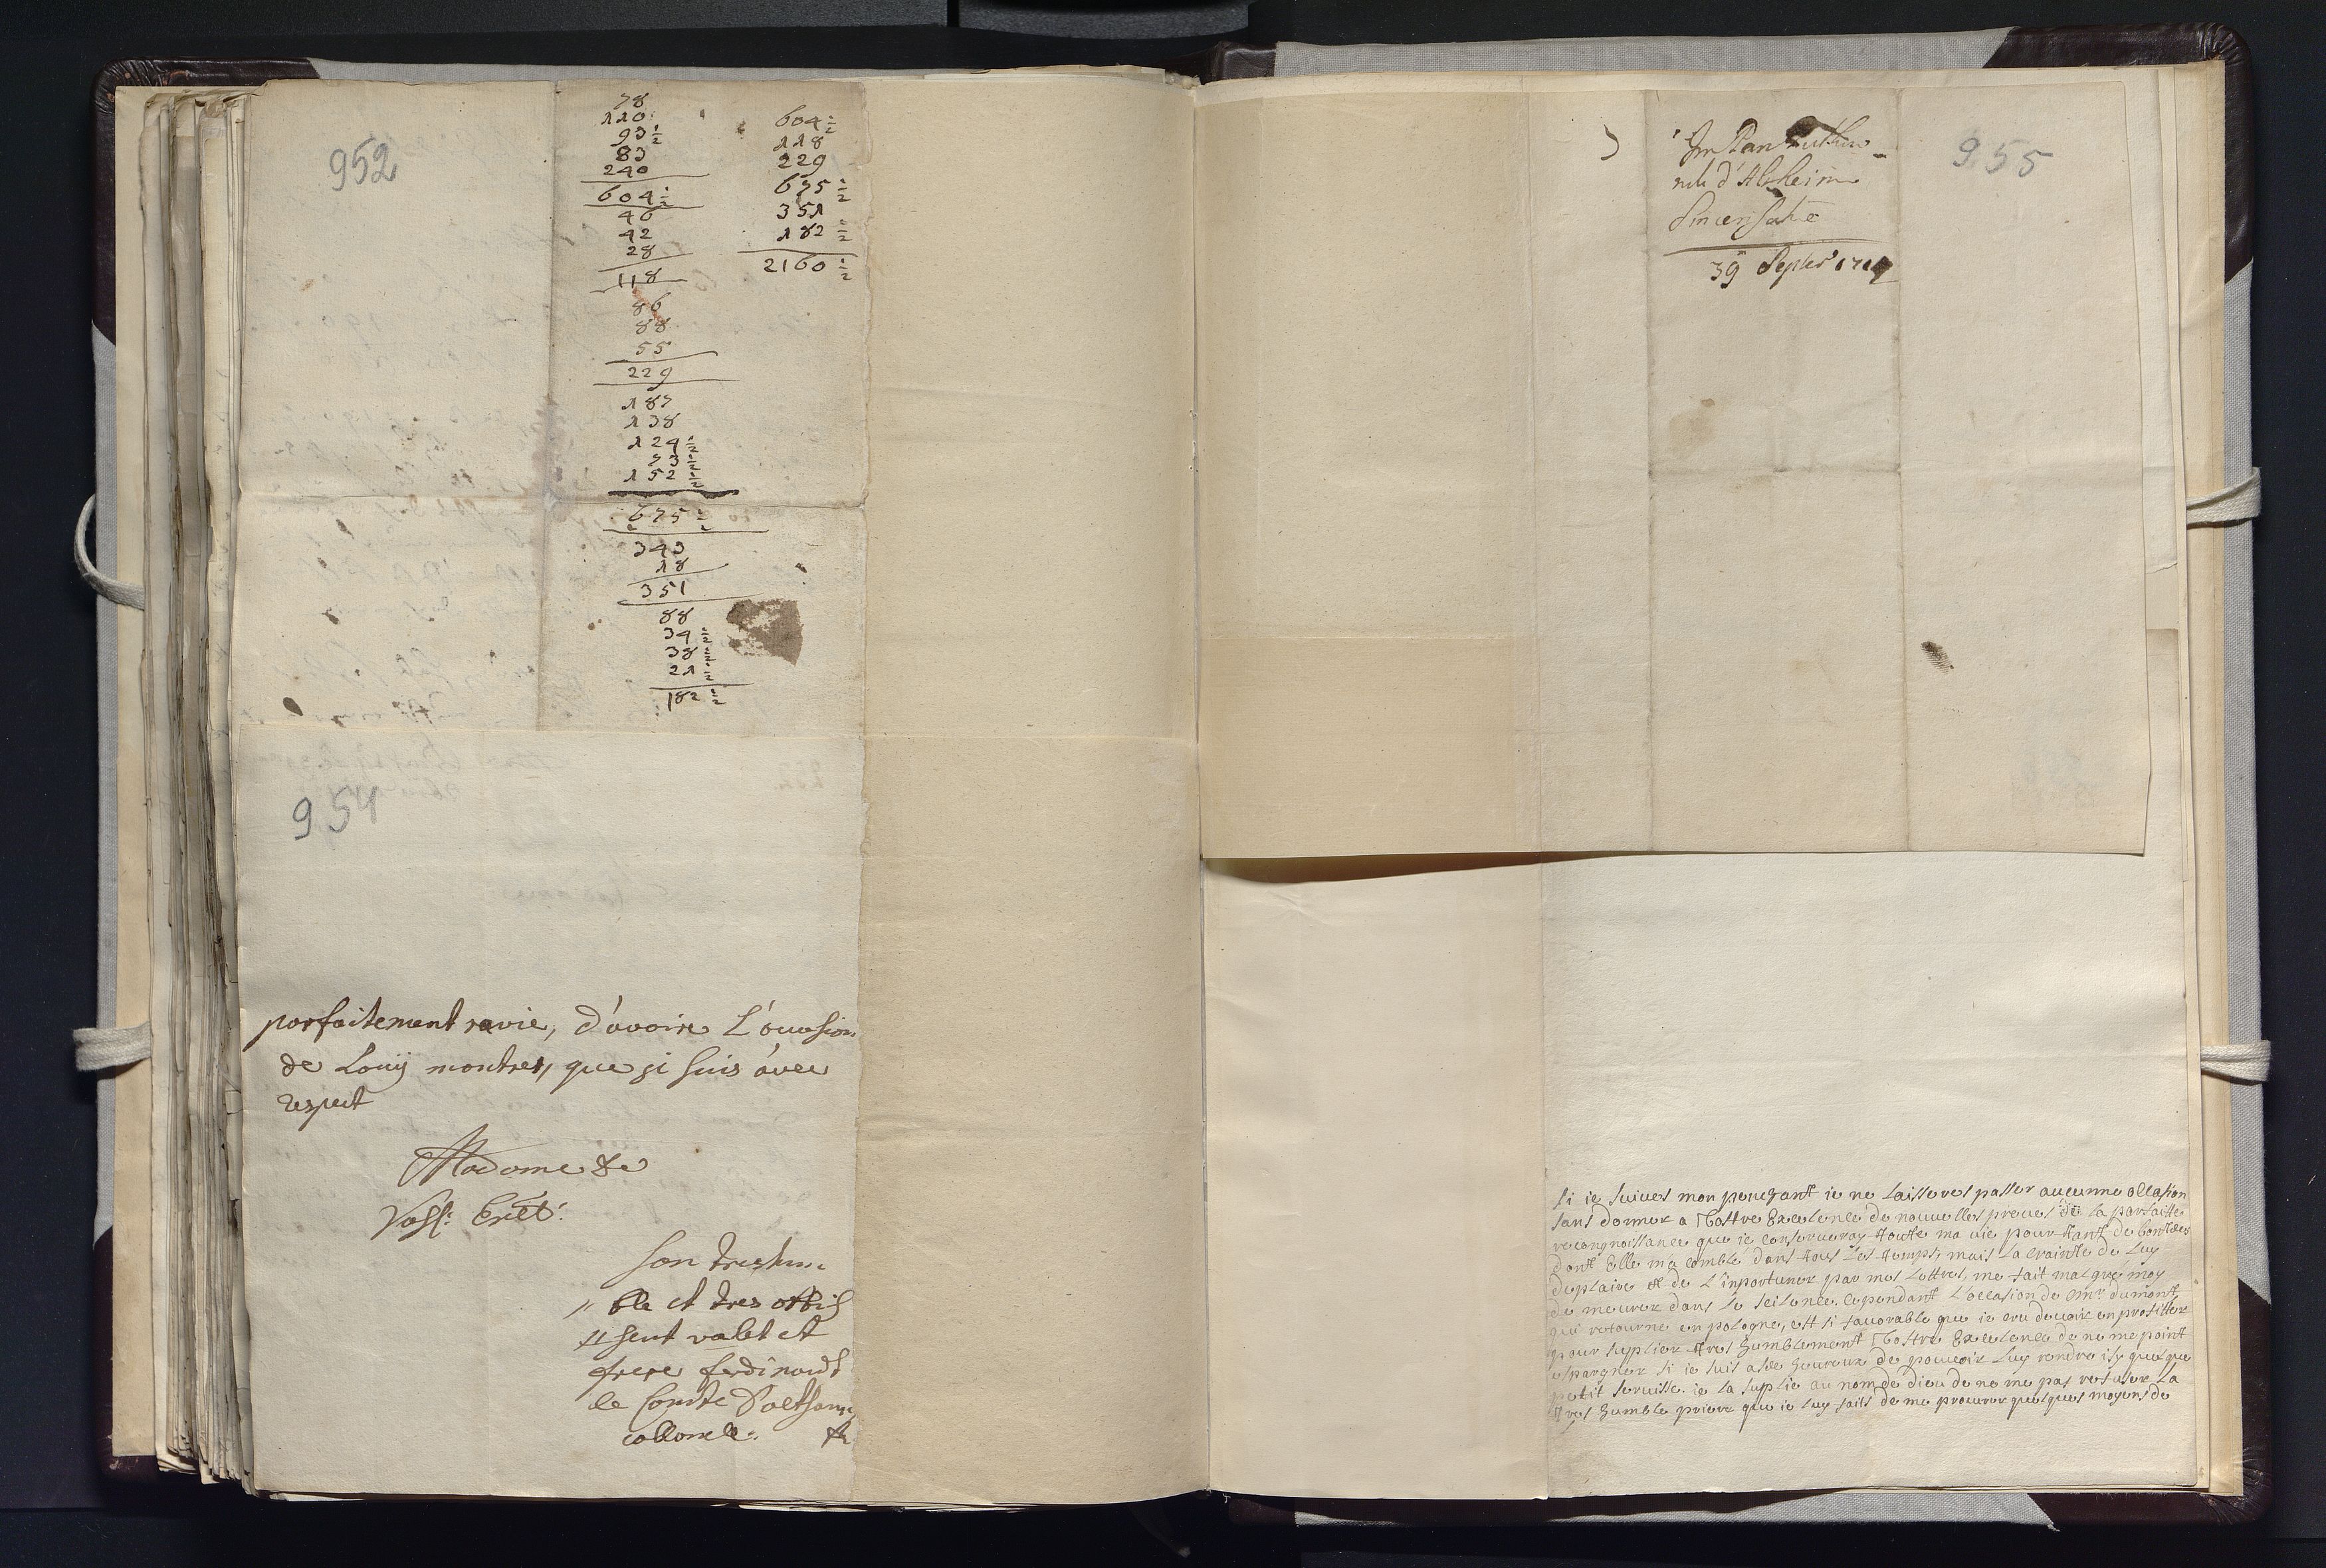 952
78
110
93 1/2
83
240
604 1/2
46
42
28
118
86
88
55
229
187
138
124 1/2
73 1/2
152 1/2
675 1/2
343
18
351
88
34 1/2
38 1/2
21 1/2
182 1/2
604 1/2
118
229
675 1/2
351
182 1/2
2160 1/2
954
parfaitement ravie, d'avoire L'ouasion
de Louij montrer, que ji suis avec
respect
Madame &c
Vost: Exēt:
son treshum
,, ble et tres obbis
,, sent valet et
frere ferdinandt
le Comte
collonele.
955
d'Absheim
39 Septer 1714
si ie suives mon penchant ie ne Laisseres passer aucunne occasion
sans donner a Vostre Excelence de nouvelles preuves de la parfaitte
recongnoissance que ie conserveray toutte ma vie pour tant de bonttees
dont Elle m'a comblé dans tous Les temps, mais La crainte de Luy
deplaire et de L'inportuner par mes Lettres, me fait malgré moy
de meurer dans Le seilence. cependant L'occasion de Mr dumont
qui retourne en pologne, est si favorable que ie cru devoir en profitter
pour suplier tres humblement Vostre Excelence de ne me point
espargner si ie suis asse heureux de pouvoir Luy rendre isy quelque
petit servisse. ie La suplie au nom de dieu de ne me pas refuser La
tres humble priere que ie Luy fais de me procurer quelques moyens de